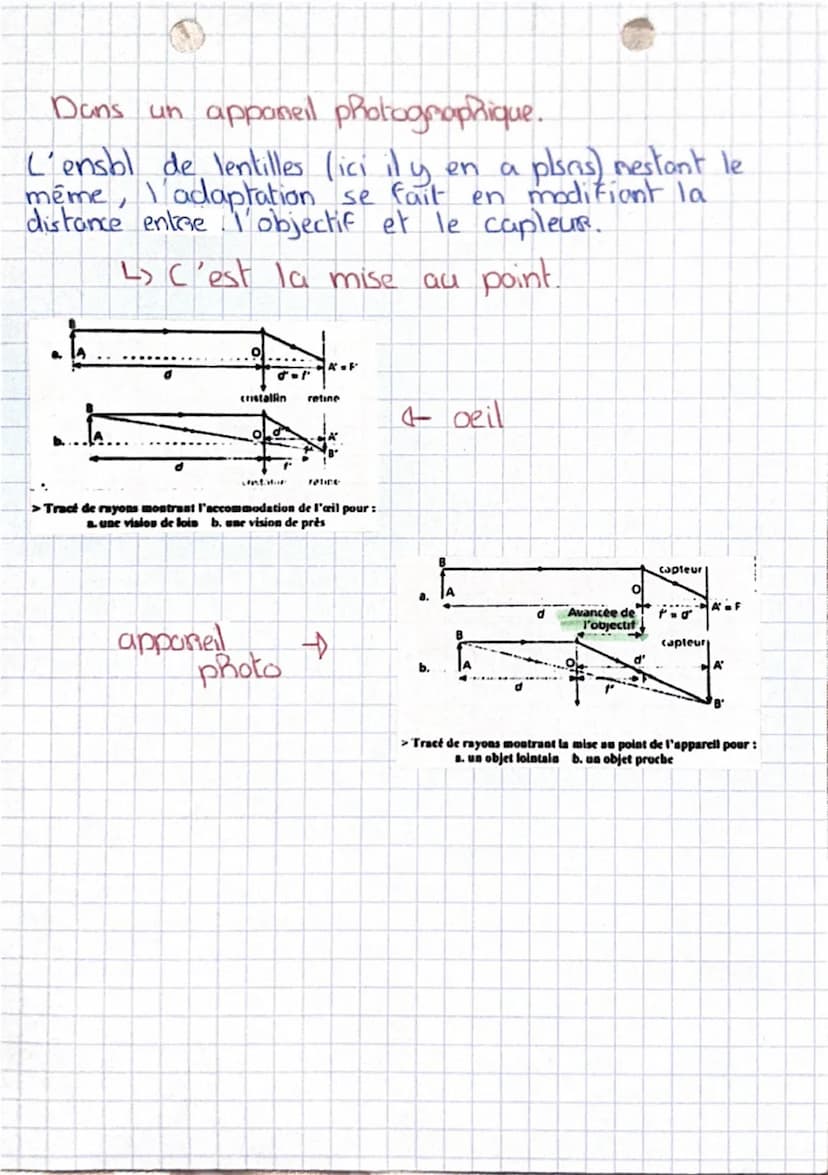 Dans un appareil photographique.
L'ensbl de lentilles (ici il y en a plsrs) restant le
même, l'adaptation se fait en modifiant la
distance entre l'objectif et le capteur.
↳ C'est la mise au point.
B
a. A O A' = F'
d d' = f'
cristallin retine
B
b. A O d' A'
B'
d f'
cristallin retine
> Tracé de rayons montrant l'accommodation de l'œil pour :
a. une vision de loin b. une vision de près
← oeil
B capteur
a. A O A' = F
d Avancée de l'objectif f' = d'
B capteur
b. A O d' A'
d f'
B'
appareil photo →
> Tracé de rayons montrant la mise au point de l'appareil pour :
a. un objet lointain b. un objet proche